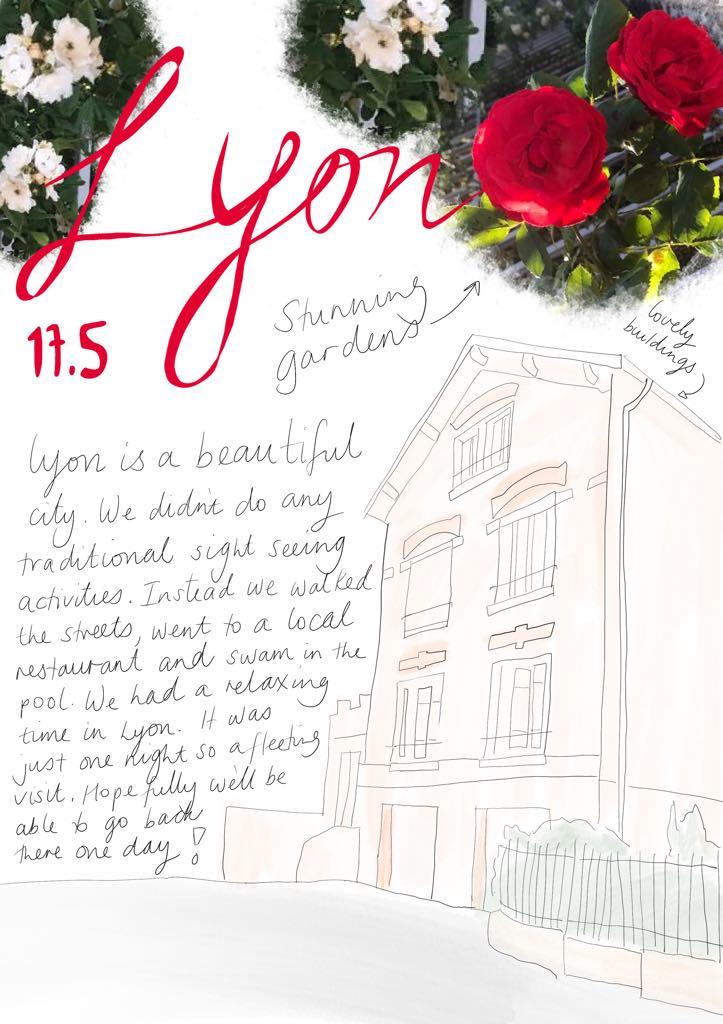 Lyon
17.5
Stunning
gardens
lovely
buildings
Lyon is a beautiful
city. We didn't do any
traditional sight seeing
activities. Instead we walked
the streets, went to a local
restaurant and swam in the
pool. We had a relaxing
time in Lyon. It was
just one night so a fleeting
visit. Hopefully we'll be
able to go back
there one day!